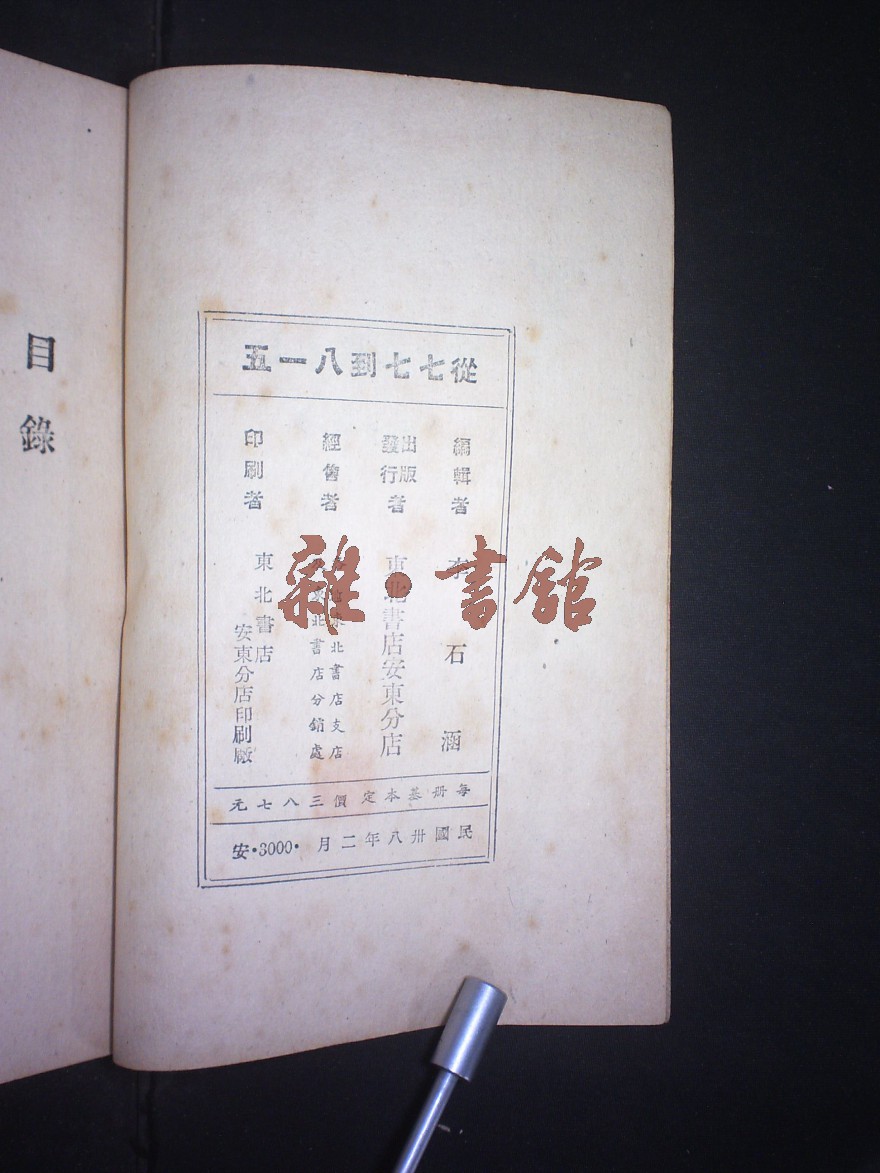 從七七到八一五
編輯者 李石涵
出版
發行
者 東北書店安東分店
經售者 東北書店支店
東北書店分銷處
印刷者 東北書店
安東分店印刷廠
每册基本定價三八七元
民國卅八年二月·3000·安
目錄
雜·書館